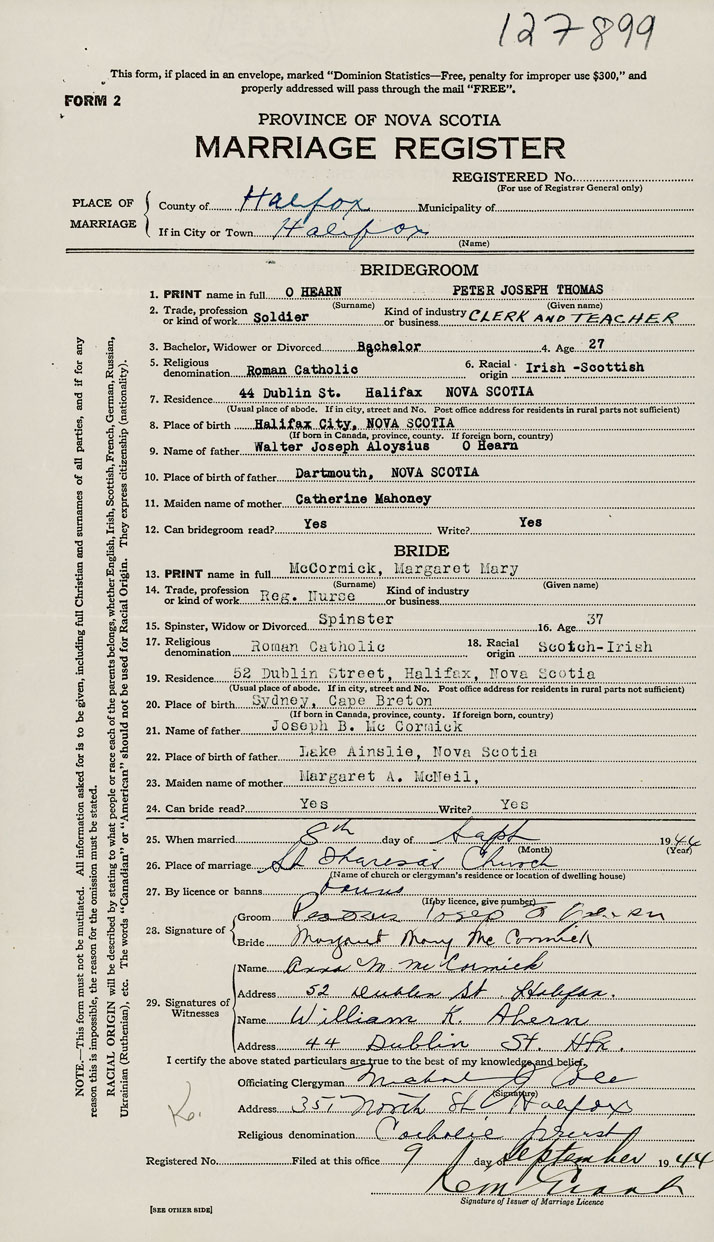 127899
This form, if placed in an envelope, marked "Dominion Statistics—Free, penalty for improper use $300," and
properly addressed will pass through the mail "FREE".
FORM 2
PROVINCE OF NOVA SCOTIA
MARRIAGE REGISTER
REGISTERED No.
(For use of Registrar General only)
PLACE OF MARRIAGE
County of Halifax Municipality of
If in City or Town Halifax
(Name)
BRIDEGROOM
1. PRINT name in full O HEARN PETER JOSEPH THOMAS
(Surname) (Given name)
2. Trade, profession or kind of work Soldier Kind of industry or business CLERK AND TEACHER
3. Bachelor, Widower or Divorced Bachelor 4. Age 27
5. Religious denomination Roman Catholic 6. Racial origin Irish -Scottish
7. Residence 44 Dublin St. Halifax NOVA SCOTIA
(Usual place of abode. If in city, street and No. Post office address for residents in rural parts not sufficient)
8. Place of birth Halifax City, NOVA SCOTIA
(If born in Canada, province, county. If foreign born, country)
9. Name of father Walter Joseph Aloysius O Hearn
10. Place of birth of father Dartmouth, NOVA SCOTIA
11. Maiden name of mother Catherine Mahoney
12. Can bridegroom read? Yes Write? Yes
BRIDE
13. PRINT name in full McCormick, Margaret Mary
(Surname) (Given name)
14. Trade, profession or kind of work Reg. Nurse Kind of industry or business
15. Spinster, Widow or Divorced Spinster 16. Age 37
17. Religious denomination Roman Catholic 18. Racial origin Scotch-Irish
19. Residence 52 Dublin Street, Halifax, Nova Scotia
(Usual place of abode. If in city, street and No. Post office address for residents in rural parts not sufficient)
20. Place of birth Sydney, Cape Breton
(If born in Canada, province, county. If foreign born, country)
21. Name of father Joseph B. Mc Cormick
22. Place of birth of father Lake Ainslie, Nova Scotia
23. Maiden name of mother Margaret A. McNeil,
24. Can bride read? Yes Write? Yes
25. When married 8th day of Sept 1944
(Month) (Year)
26. Place of marriage St Theresa's Church
(Name of church or clergyman's residence or location of dwelling house)
27. By licence or banns banns
(If by licence, give number)
28. Signature of
Groom Joseph O Hearn
Bride Margaret Mary McCormick
29. Signatures of Witnesses
Name Anna M McCormick
Address 52 Dublin St Halifax.
Name William K. Ahern
Address 44 Dublin St. Hfx.
I certify the above stated particulars are true to the best of my knowledge and belief.
Officiating Clergyman Michael Cole
(Signature)
Address 351 North St Halifax
Religious denomination Catholic priest
Registered No. Filed at this office 9 day of September 1944
Signature of Issuer of Marriage Licence
[SEE OTHER SIDE]
NOTE.—This form must not be mutilated. All information asked for is to be given, including full Christian and surnames of all parties, and if for any
reason this is impossible, the reason for the omission must be stated.
RACIAL ORIGIN will be described by stating to what people or race each of the parents belongs, whether English, Irish, Scottish, French, German, Russian,
Ukrainian (Ruthenian), etc. The words "Canadian" or "American" should not be used for Racial Origin. They express citizenship (nationality).